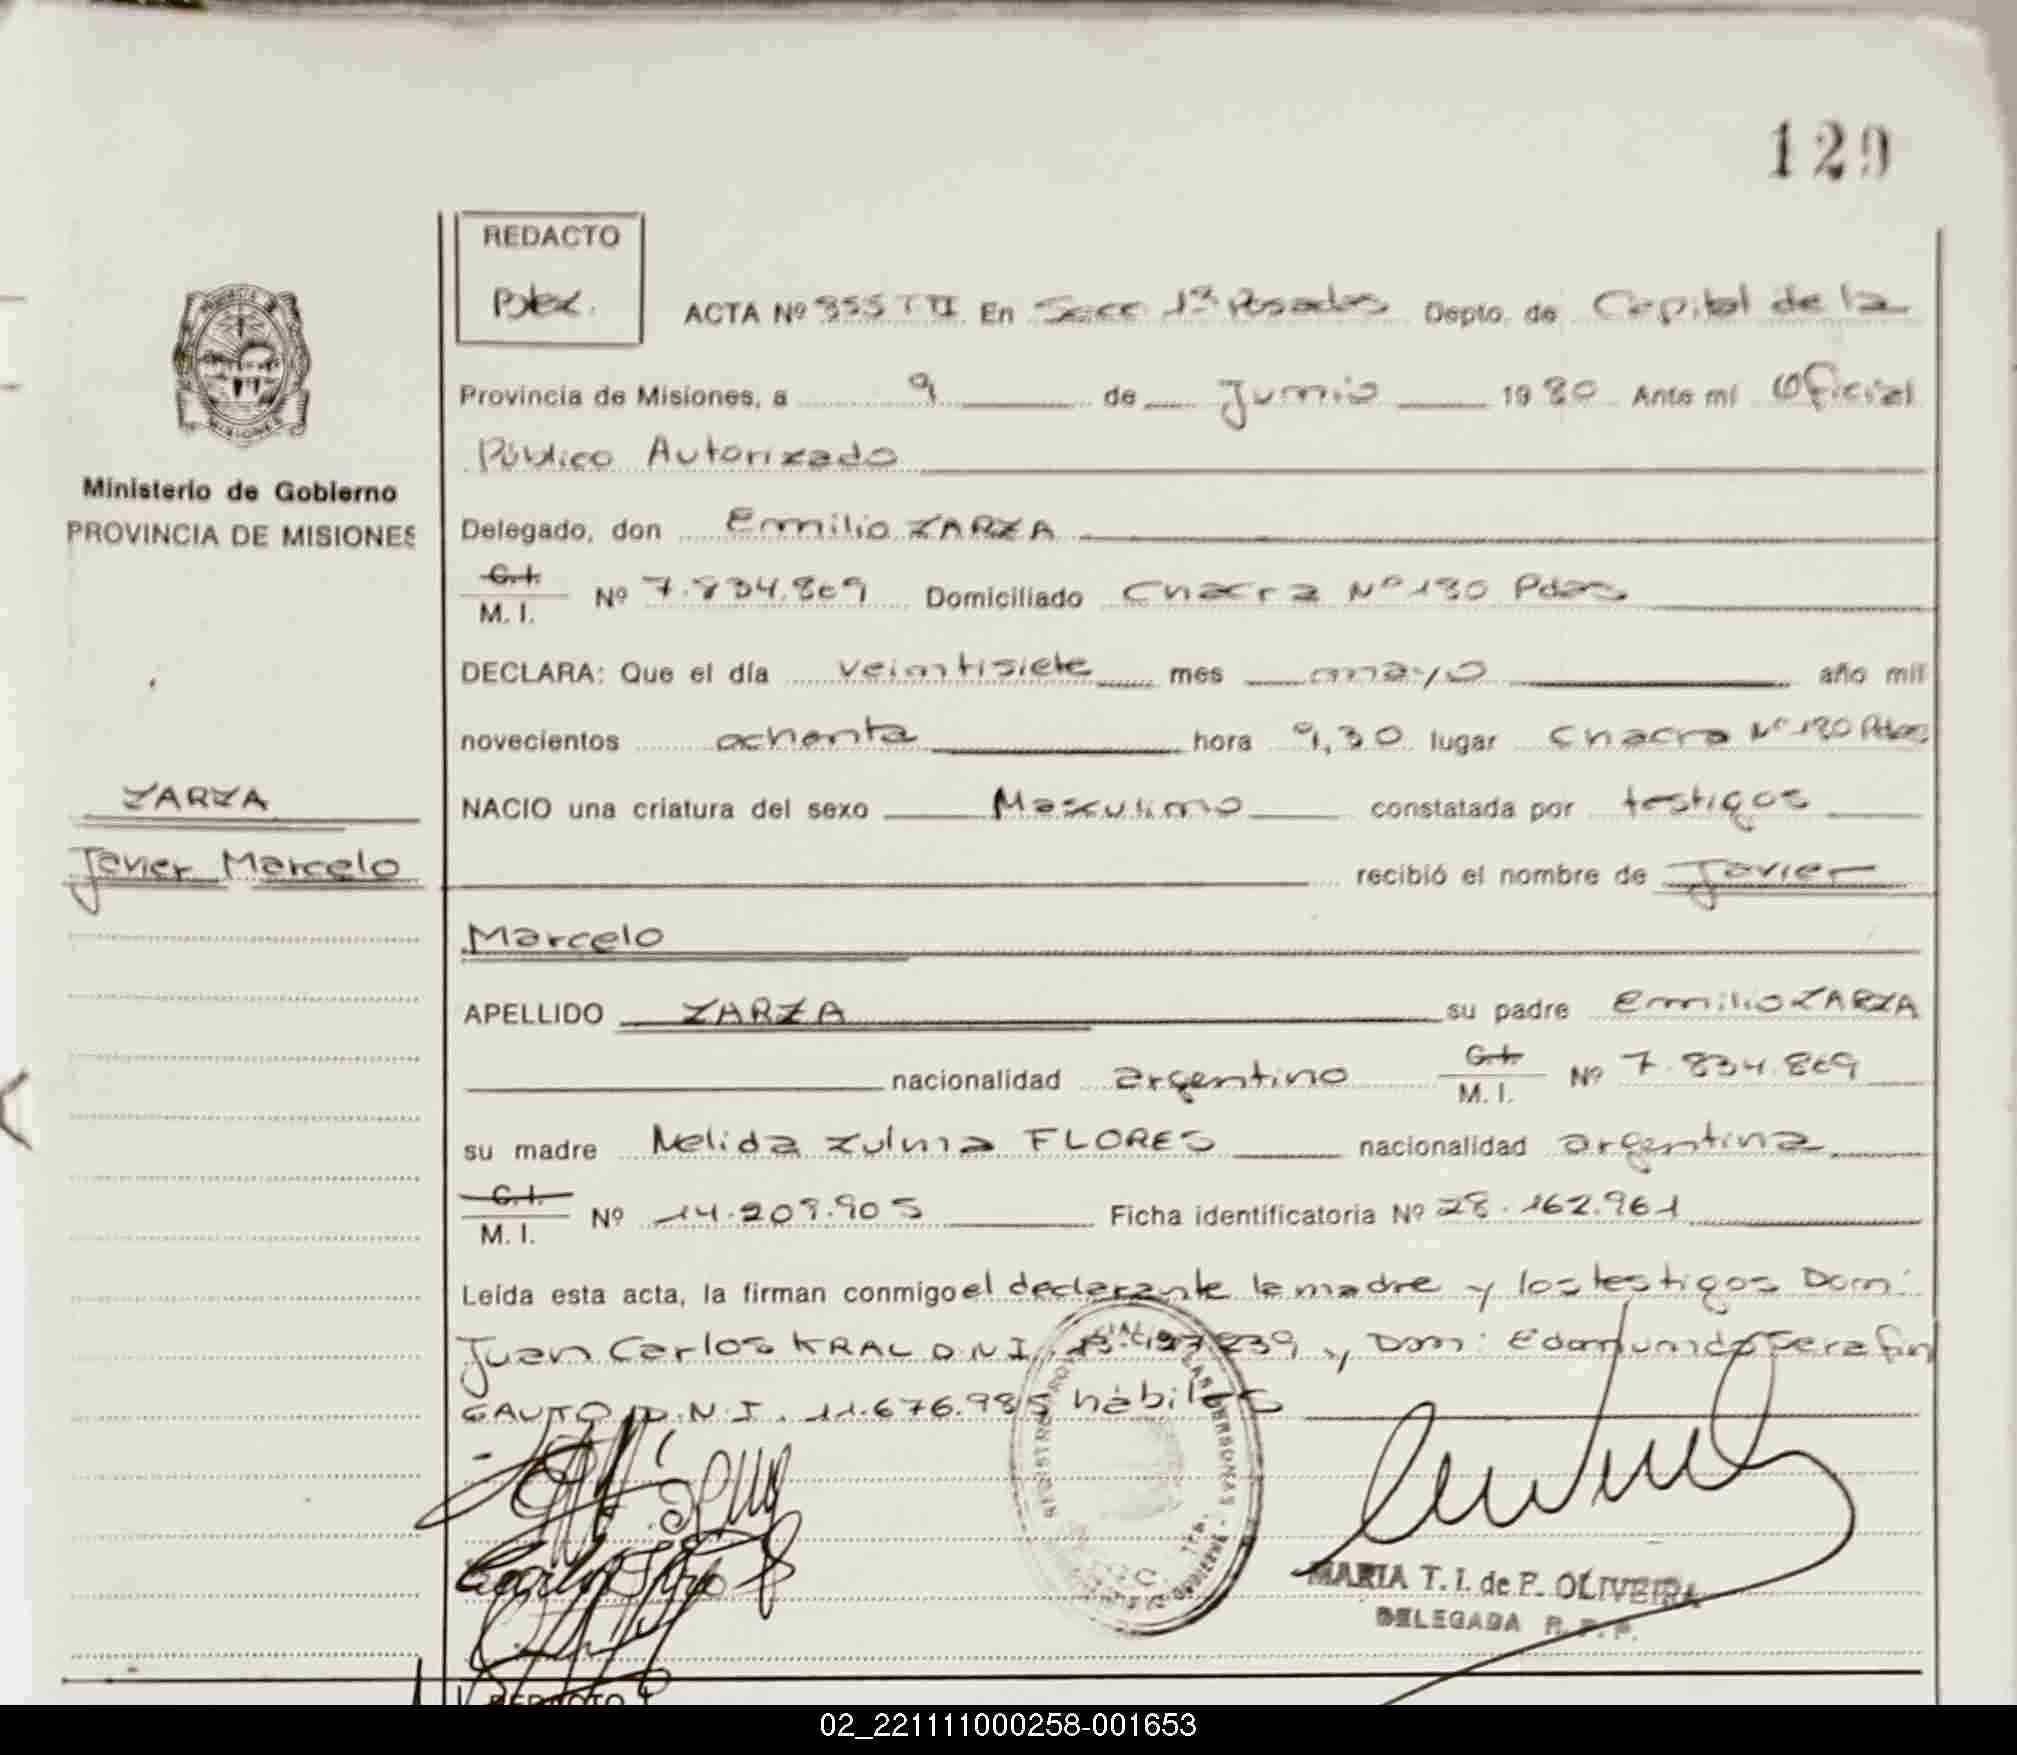 129
REDACTO
ACTA Nº 955 T II En Secc 1ª Posadas Depto. de Capital de la
Provincia de Misiones, a 9 de Junio 1980 Ante mí Oficial
Público Autorizado
Ministerio de Gobierno
PROVINCIA DE MISIONES
Delegado, don Emilio ZARZA
C.I.
M. I. Nº 7.834.869 Domiciliado Chacra Nº 180 Pdas
DECLARA: Que el día veintisiete mes mayo año mil
novecientos ochenta hora 9,30 lugar Chacra Nº 180 Pdas
ZARZA
NACIO una criatura del sexo Masculino constatada por testigos
Javier Marcelo
recibió el nombre de Javier
Marcelo
APELLIDO ZARZA su padre Emilio ZARZA
nacionalidad argentino C.I. M. I. Nº 7.834.869
su madre Nelida Zulma FLORES nacionalidad argentina
C.I.
M. I. Nº 14.209.905 Ficha identificatoria Nº 28.162.961
Leída esta acta, la firman conmigo el declarante la madre y los testigos Don:
Juan Carlos KRAL D.N.I. y Don: Edmundo Serafin
GAUTO D.N.I. 11.676.985 hábiles
MARIA T. I. de P. OLIVEIRA
DELEGADA R. P. P.
REDACTO
02_221111000258-001653